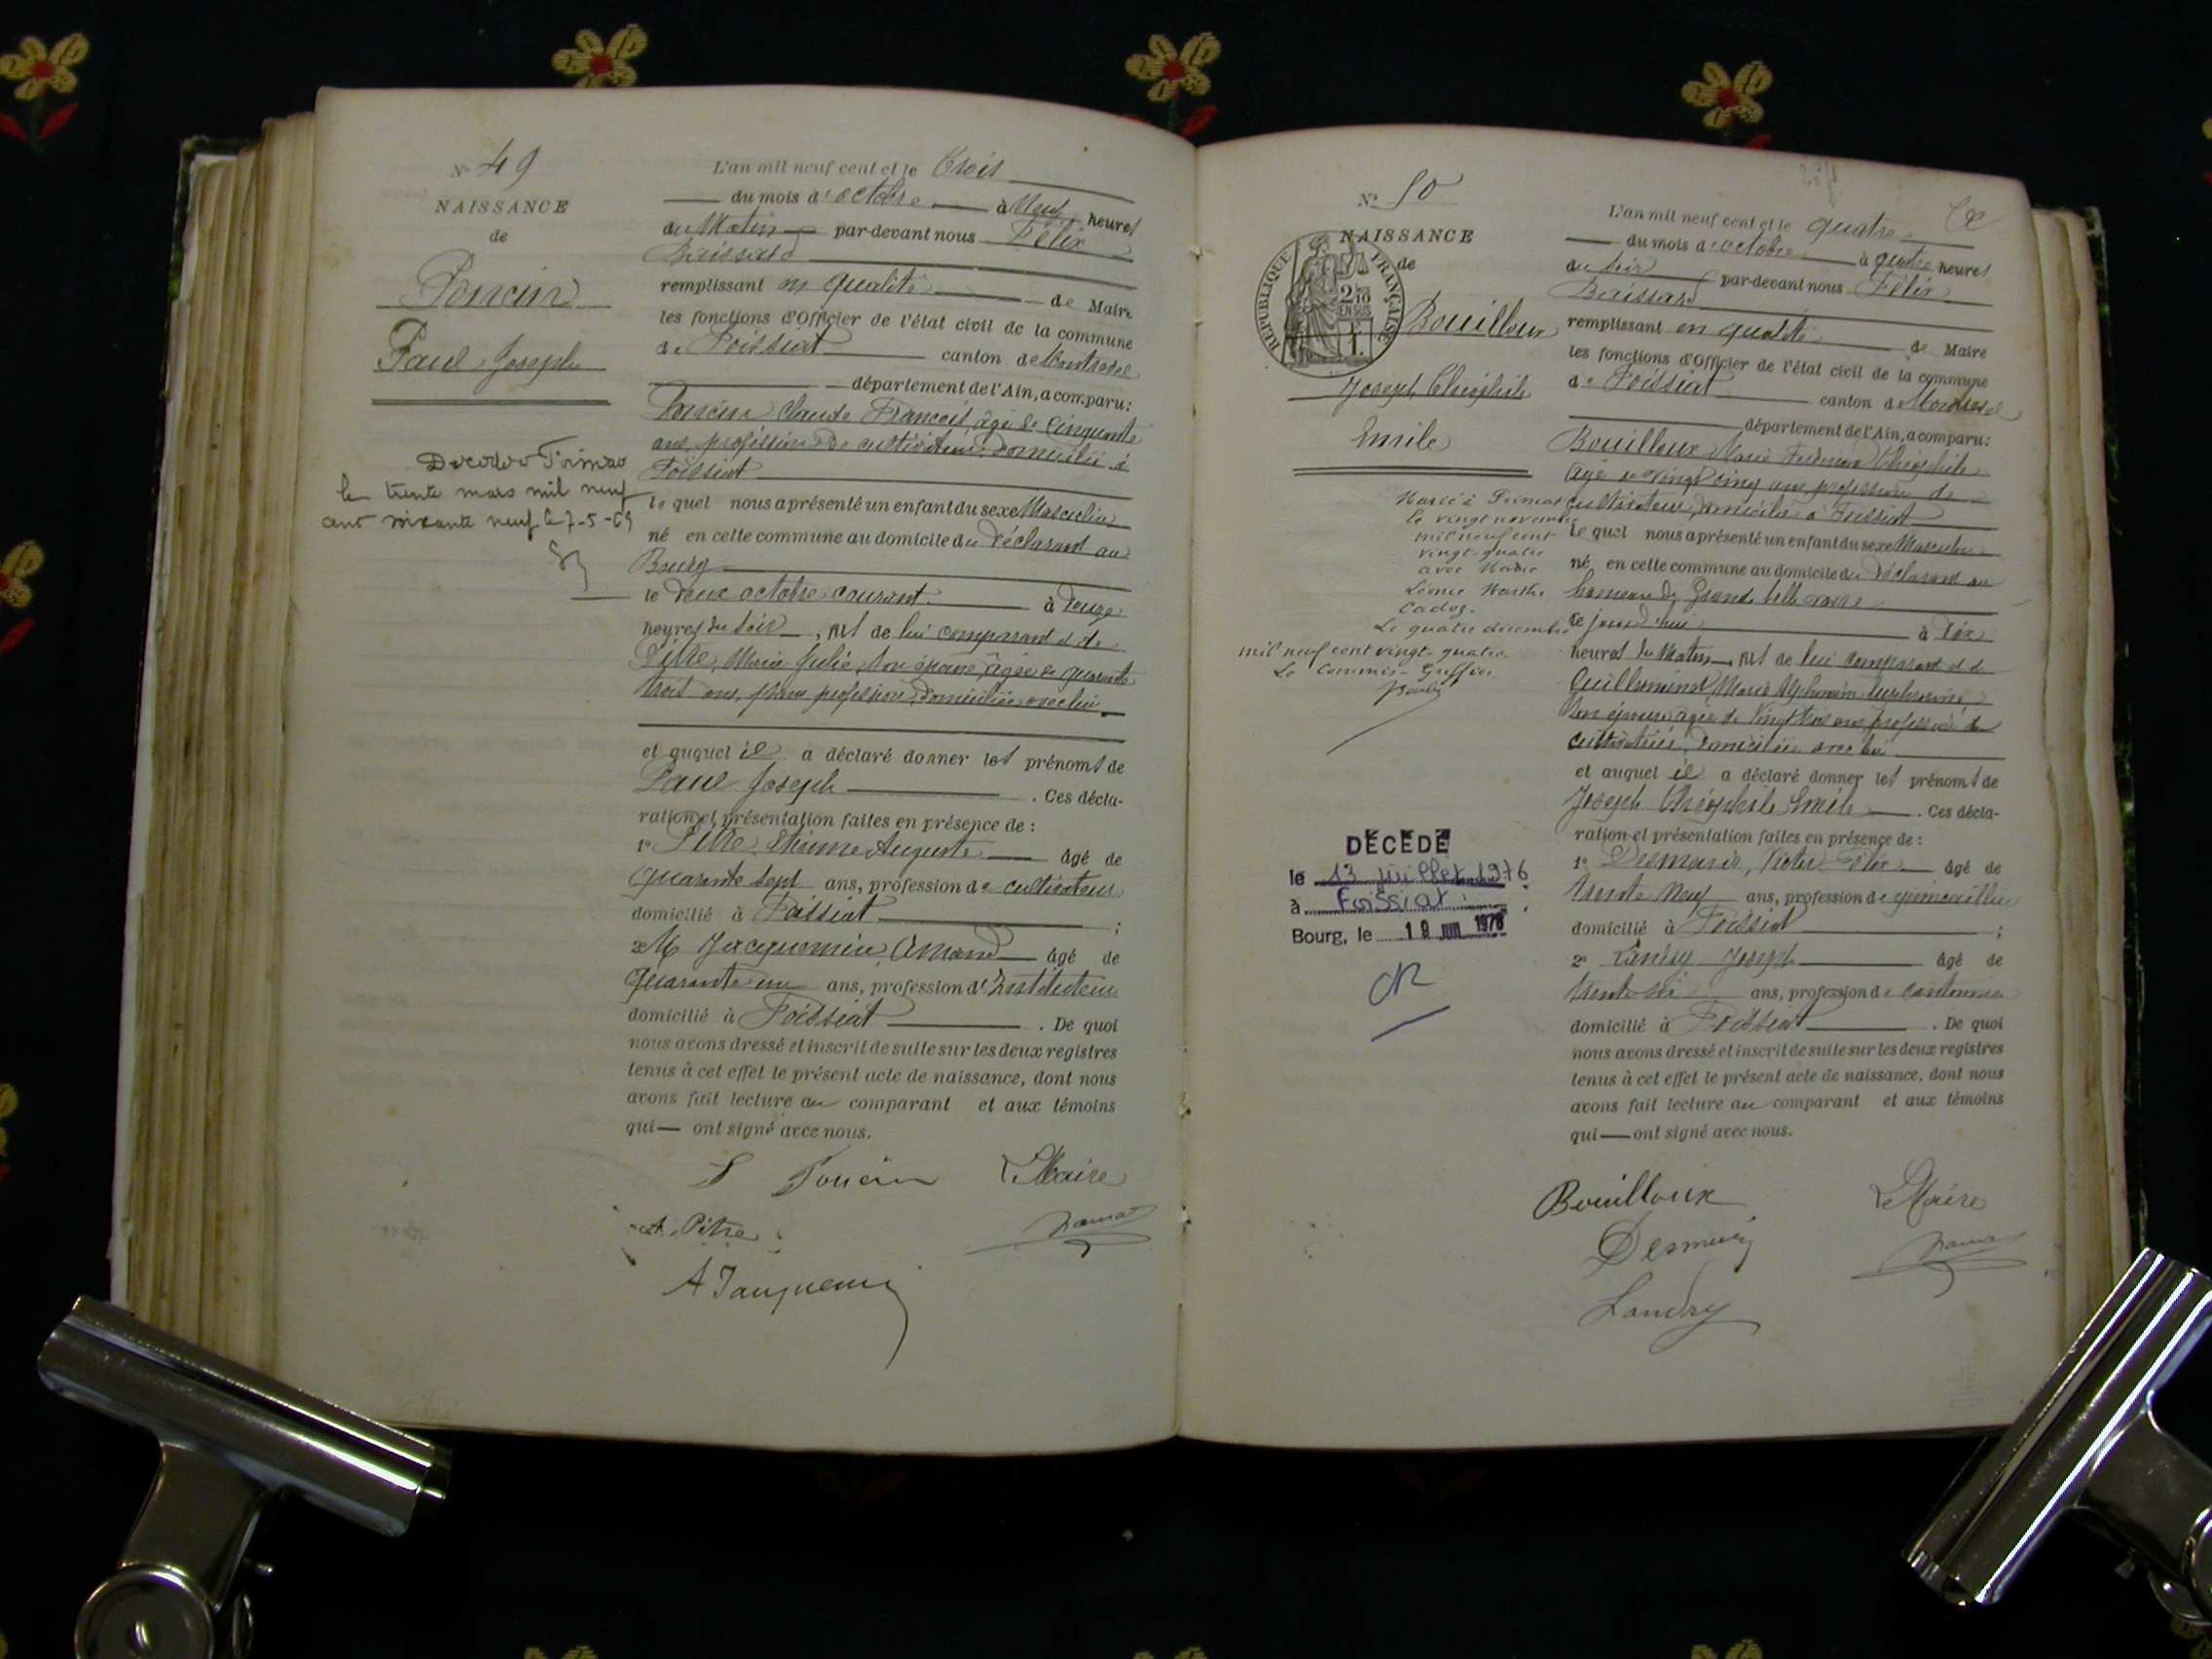 N° 49
NAISSANCE
de
Poncin
Paul Joseph
Décédé à Foissiat
le trente mars mil neuf
cent soixante neuf le 7-5-69
L'an mil neuf cent et le trois
du mois d'octobre à Neuf heures
du Matin par-devant nous Félix
remplissant en qualité de Maire
les fonctions d'Officier de l'état civil de la commune
de Foissiat canton de Montrevel
département de l'Ain, a comparu:
Poncin Claude François, âgé de Cinquante
ans, profession de cultivateur, domicilié à
Foissiat
le quel nous a présenté un enfant du sexe Masculin
né en cette commune au domicile du déclarant au
Bourg
le deux octobre courant à douze
heures du soir, fils de lui comparant et de
Pitre, Marie Julie, son épouse, âgée de quarante
trois ans, sans profession, domiciliée avec lui
et auquel il a déclaré donner les prénoms de
Paul Joseph . Ces décla-
ration et présentation faites en présence de :
1° Pitre, Etienne Auguste âgé de
quarante sept ans, profession de cultivateur
domicilié à Foissiat ;
2° M Jacquemin, Amand âgé de
quarante un ans, profession d'Instituteur
domicilié à Foissiat . De quoi
nous avons dressé et inscrit de suite sur les deux registres
tenus à cet effet le présent acte de naissance, dont nous
avons fait lecture au comparant et aux témoins
qui — ont signé avec nous.
Poncin Le Maire
A. Pitre
A Jacquemin
N° 50
NAISSANCE
de
RÉPUBLIQUE FRANÇAISE
2/10
EN SUS
1 F.
Bouilloux
Joseph Théophile
Emile
Marié à Foissiat
le vingt novembre
mil neuf cent
vingt-quatre
avec Marie
Léonie Marthe
Cadoz.
Le quatre décembre
mil neuf cent vingt-quatre
Le Commis-Greffier
DÉCÉDÉ
le 13 juillet 1976
à Foissiat
Bourg, le 19 1976
L'an mil neuf cent et le quatre
du mois d'octobre à quatre heures
du soir par-devant nous Félix
remplissant en qualité de Maire
les fonctions d'Officier de l'état civil de la commune
de Foissiat canton de Montrevel
département de l'Ain, a comparu:
Bouilloux Marie Ferdinand Théophile
âgé de vingt cinq ans profession de
cultivateur, domicilié à Foissiat
le quel nous a présenté un enfant du sexe Masculin
né en cette commune au domicile du déclarant au
hameau de Grande
ce jourd'hui à dix
heures du Matin, fils de lui comparant et de
Guilleminot, Marie
son épouse âgée de vingt trois ans profession de
cultivatrice, domiciliée avec lui
et auquel il a déclaré donner les prénoms de
Joseph Théophile Emile . Ces décla-
ration et présentation faites en présence de :
1° Desmaris, Victor Félix âgé de
trente neuf ans, profession de quincaillier
domicilié à Foissiat ;
2° Landry Joseph âgé de
trente six ans, profession de cantonnier
domicilié à Foissiat . De quoi
nous avons dressé et inscrit de suite sur les deux registres
tenus à cet effet le présent acte de naissance, dont nous
avons fait lecture au comparant et aux témoins
qui — ont signé avec nous.
Bouilloux Le Maire
Desmaris
Landry